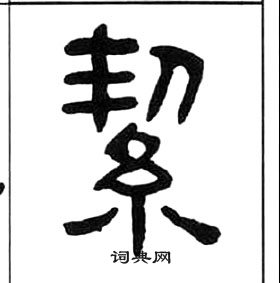 絜
词典网